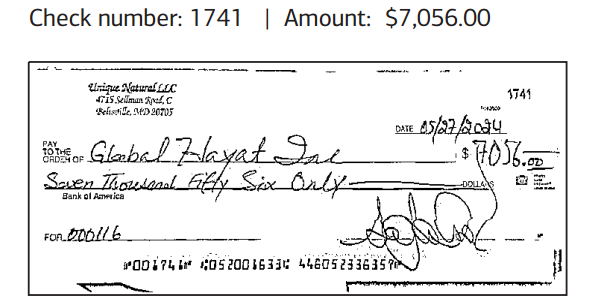 Check number: 1741 | Amount: $7,056.00
Unique Natural LLC
4715 Sellman Road, C
Beltsville, MD 20705
1741
DATE 05/27/2024
PAY TO THE ORDER OF Global Hayat Inc $ 7056.00
Seven Thousand Fifty Six Only DOLLARS
Bank of America
FOR 000116